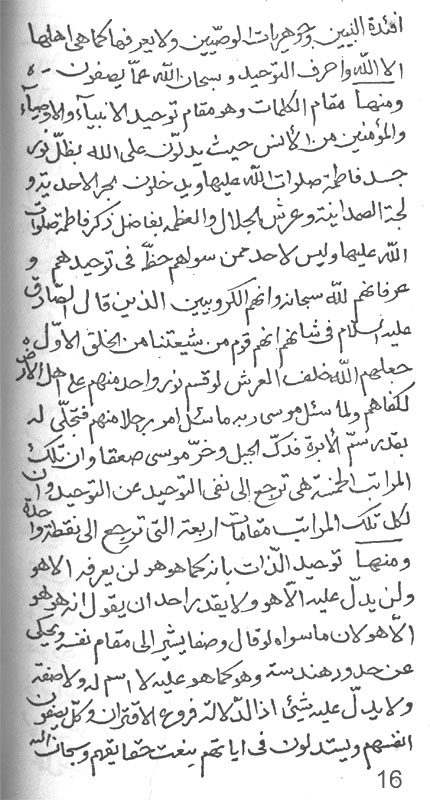 افئدة النبيين وجوهريات الوصيين ولا يعرفها كما هى اهلها
الا الله واحرف التوحيد وسبحان الله عما يصفون
ومنها مقام الكلمات وهو مقام توحيد الانبيآء والاوصيآء
والمؤمنين من الأنس حيث يدلون على الله بظل نور
جسد فاطمة صلوات الله عليها ويدخلون بحر الاحدية و
لجة الصمدانية وعرش الجلال والعظمه بفاضل ذكر فاطمة صلوات
الله عليها وليس لاحد ممن سولهم حظ فى توحيدهم و
عرفانهم لله سبحانه وانهم الكروبيين الذين قال الصادق
عليه السلام فى شانهم انهم قوم من شيعتنا من الخلق الاول
جعلهم الله خلف العرش لو قسم نور واحد منهم على اهل الارض
لكفاهم ولما سئل موسى ربه ما سئل امر رجلا منهم فتجلى له
بقدر سم الأبرة فدك الجبل وخر موسى صعقا وان تلك
المراتب الخمسة هى ترجع إلى نفى التوحيد عن التوحيد وان
لكل تلك المراتب مقامات اربعة التى ترجع الى نقطة واحدة
ومنها توحيد الذات بانه كما هو هو لن يعرفه الا هو
ولن يدل عليه الا هو ولا يقدر احد ان يقول انه هو هو
الا هو لان ما سواه لو قال وصفا يشير الى مقام نفسه ويحكى
عن حدود هندسته وهو كما هو عليه لا اسم له ولا صفة
ولا يدل عليه شيئ اذ الدلالة فرع الاقتران وكل يصفون
انفسهم ويستدلون فى اياتهم بنعت حقايقهم وسبحان الله
16